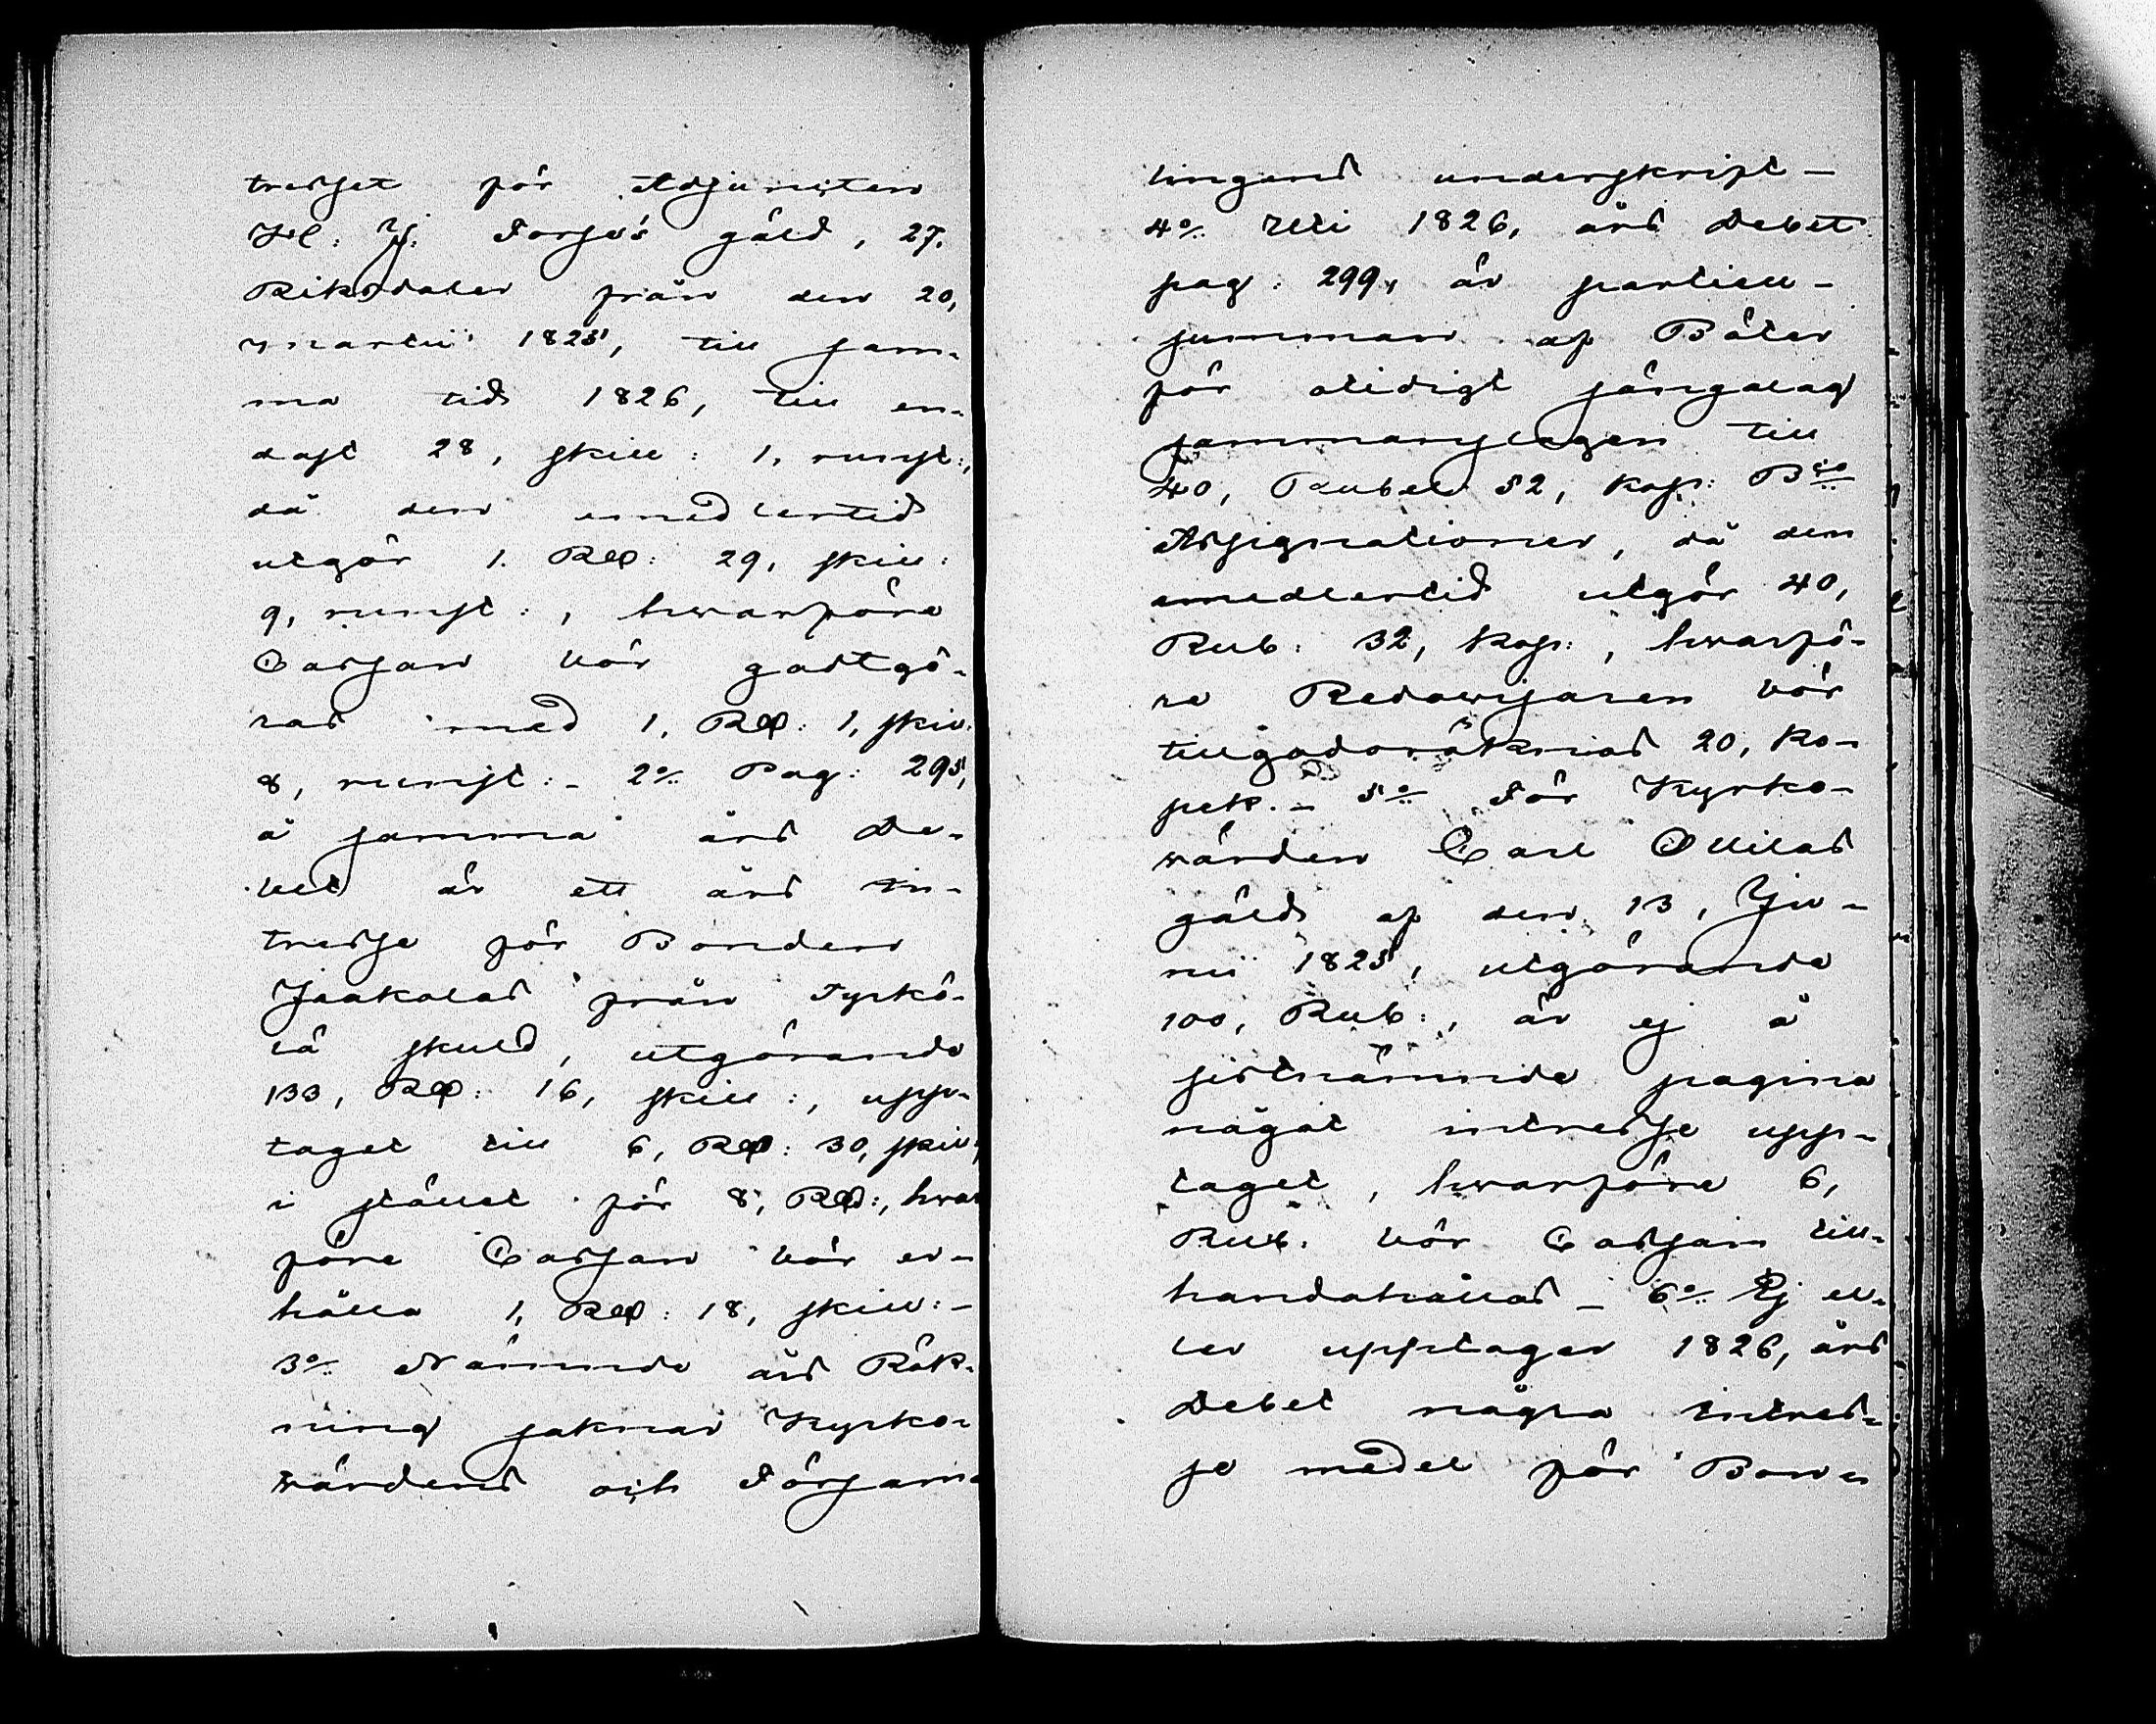 tresset för Adjuncten
H: J: Forss's gäld, 27.
Riksdaler från den 20,
martii 1825, till sam-
ma tid 1826, till en-
dast 28, skill: 1, runst:,
då den emedlertid
utgör 1. Rd: 29, skill:
9, runst:, hwarföre
Cassan bör godtgö-
ras med 1, Rd: 1, skill:
8, runst: - 2o/. Pag: 295,
å samma års De-
bet är ett års In-
tresse för Bonden
Jaakolas från Pyrkö-
lä skuld, utgörande
133, Rd: 16, skill:, upp-
taget till 6, Rd: 30, skill:,
i stället för 8, Rd:, hwar
före Cassan bör er-
hålla 1, Rd: 18, skill: -
3o/. Nämnde års Räk-
ning saknar Kyrko-
wärdens och Församl
lingens underskrift -
4o/. Uti 1826, års Debet
pag: 299, är particu-
summan af Böter
för otidigt sängalag
sammanslagen till
40, Rubel 52, kop: Bco
Assignationer, då den
emedlertid utgör 40,
Rub: 32, kop:, hwarfö-
re Redowisaren bör
tillgodoräknas 20, ko-
pek. - 5o/. För Kyrko-
wärden Carl Ollilas
gäld af den 13, Ju-
nii 1825, utgörande
100, Rub:, är ej å
sistnämnde pagina
något intresse upp-
taget, hwarföre 6,
Rub. bör Cassan till-
handahållas - 6o/. Ej el-
ler upptager 1826, års
Debet några intres-
se medel för Bon-